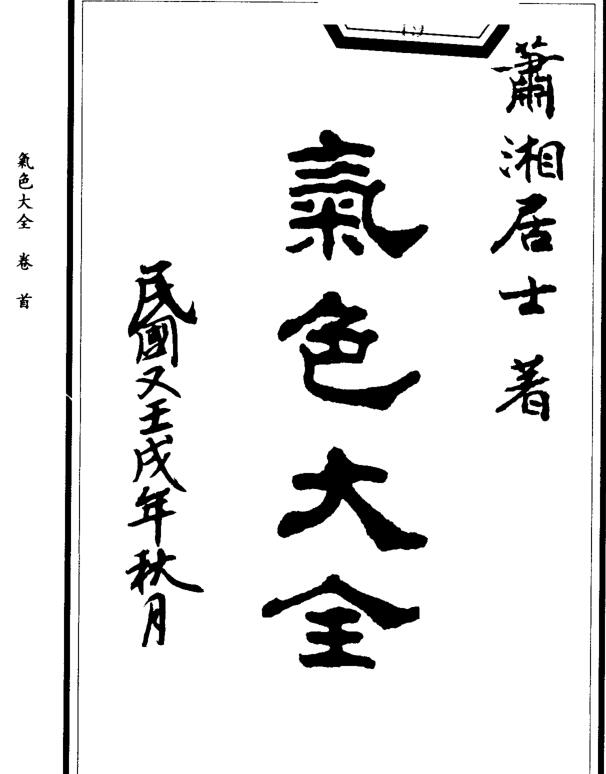 蕭湘居士著
氣色大全
民國又壬戌年秋月
氣色大全 卷首